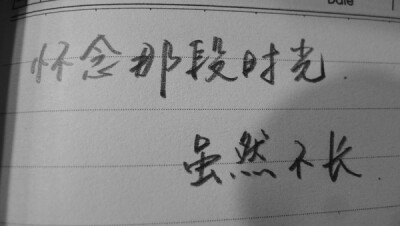 Date
怀念那段时光.
虽然不长.